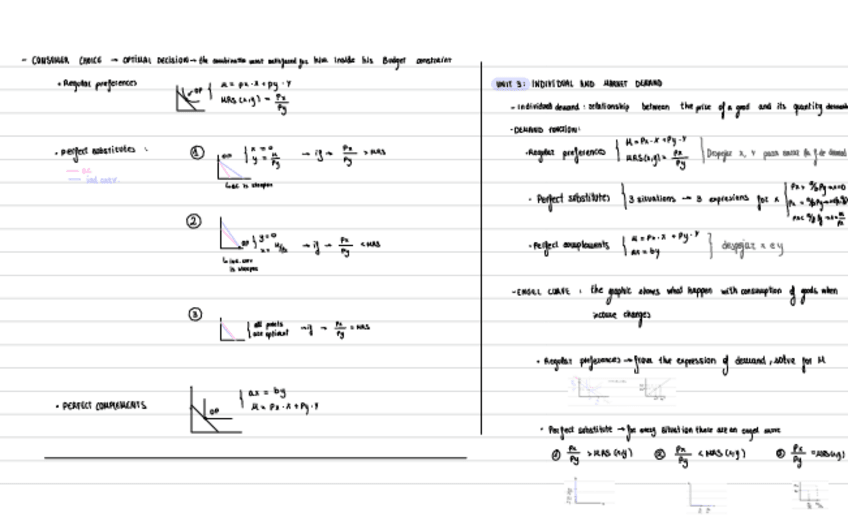 - CONSUMER CHOICE → OPTIMAL DECISION → the combination most satisfied for him inside his Budget constraint
• Regular preferences
OP
M = Px·X + Py·Y
MRS(x,y) = Px/Py
• Perfect substitutes :
BC
ind. curv
①
x = 0
y = M/Py
→ if → Px/Py > MRS
BC is steeper
②
OP
y = 0
x = M/Px
→ if → Px/Py < MRS
ind. curv is steeper
③
all points are optimal
→ if → Px/Py = MRS
• PERFECT COMPLEMENTS
OP
ax = by
M = Px·X + Py·Y
UNIT 3: INDIVIDUAL AND MARKET DEMAND
- Individual demand : relationship between the price of a good and its quantity
- DEMAND FUNCTION:
• Regular preferences
M = Px·X + Py·Y
MRS(x,y) = Px/Py
Despejar x, y para
• Perfect substitutes
3 situations → 3 expresions for x
• Perfect complements
M = Px·X + Py·Y
ax = by
despejar x e y
- ENGEL CURVE : the graphic shows what happen with consumption of goods when
income changes
• Regular preferences → from the expression of demand, solve for M
• Perfect substitute → for every situation there are an engel curve
① Px/Py > MRS(x,y)
② Px/Py < MRS(x,y)
③ Px/Py = MRS(x,y)